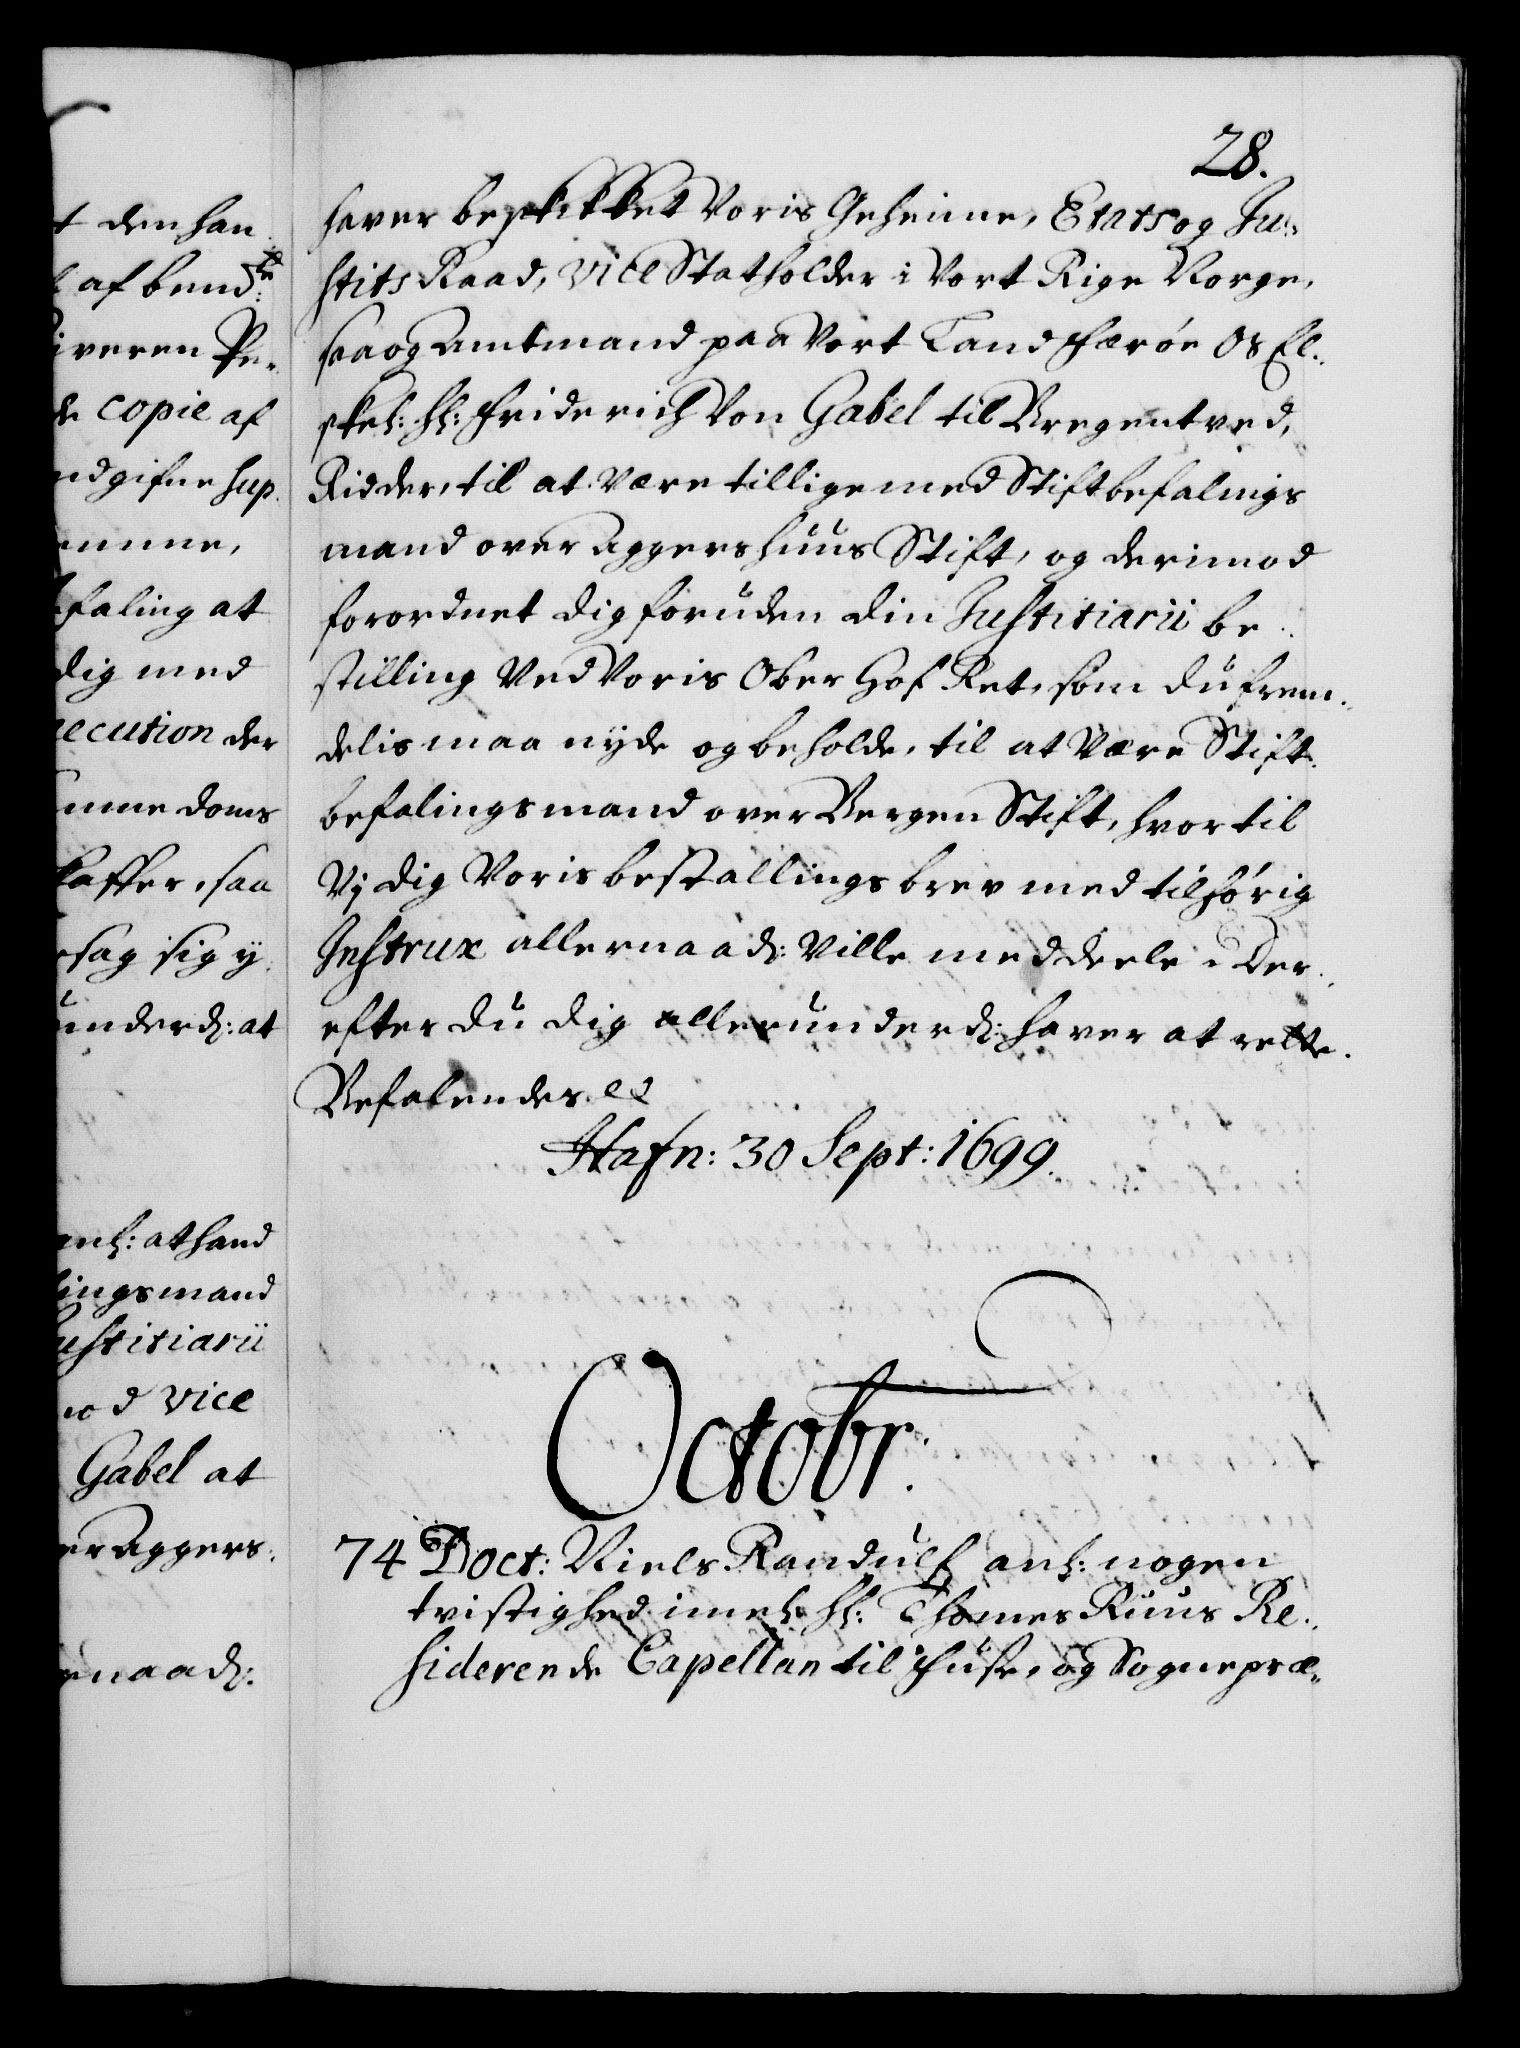 28.
t den han
af bemd:te
iveren Pe-
de copie af
ndgifne sup.
emme,
faling at
dig med
ecution der
mme doms
kaffer, saa
sag sig y
underd: at
anl: at hand
lingsmand
ustitiarii
mod vice
Gabel at
er Aggers:
naad:
hafver beskikket Voris Geheime, Etats og Ju-
stits Raad, Vice Statholder i Vort Rige Norge,
saa og Amtmand paa Vort Land Færøe Os El-
skel: Hr: Friderich Von Gabel til Bregentved,
Ridder, til at være tillige med Stiftbefalings
mand over Aggershuus Stift, og derimod
forordnet dig foruden din Justitiarii be-
stilling Ved Voris Ober Hof Ret, som du frem-
delis maa nyde og beholde, til at være Stift-
befalingsmand over Bergen Stift, hvortil
Vj dig Voris bestallings brev med tilhørig
Instrux allernaad: Ville meddeele: Der-
efter du dig allerunderd: haver at rette.
Befalendes etc
Hafn: 30 Sept: 1699.
Octobr.
74 Doct: Niels Randulf anl: nogen
tvistighed imel: Hr: Thomes Ruus Re-
siderende Capellan til Fuse, og Sognepræ-